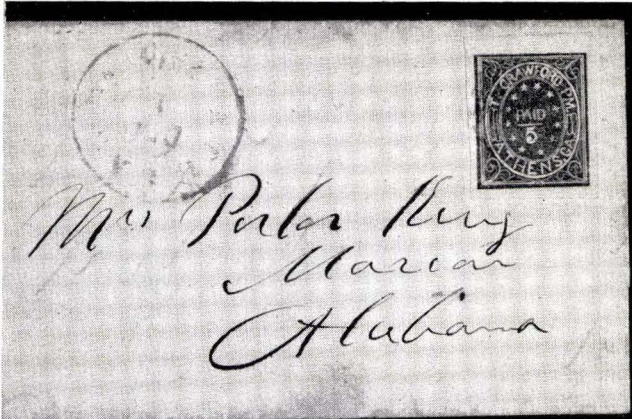 T. CRAWFORD. P.M.
PAID
5
ATHENS, GA.
Mrs Porter King
Marion
Alabama